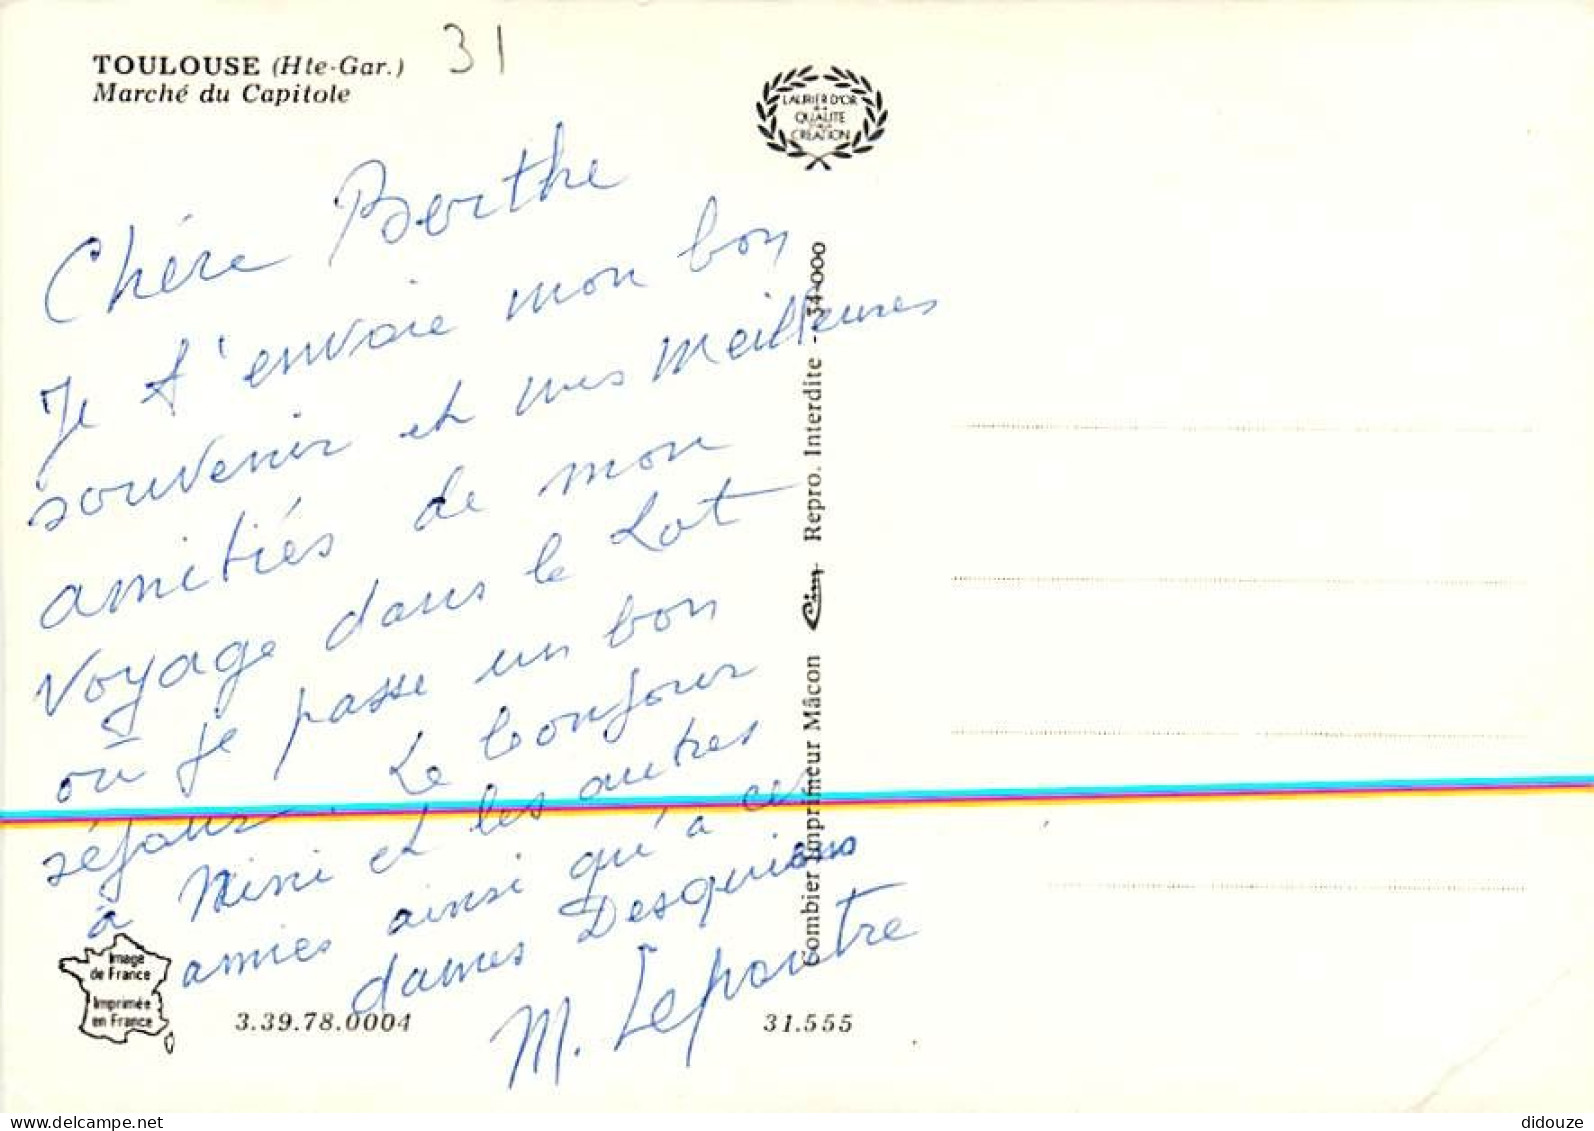 TOULOUSE (Hte-Gar.)
Marché du Capitole
31
LAURIER D'OR
DE LA
QUALITE
CREATION
Chére Berthe
Je t'envoie mon bon
souvenir et mes meilleures
amitiés de mon
voyage dans le Lot
où je passe un bon
séjour. Le bonjour
à Mimi et les autres
amies ainsi qu'à ces
dames Desquiens
M. Lepoutre
Combier Imprimeur Mâcon Cim Repro. Interdite - 34-000
Image
de France
Imprimée
en France
3.39.78.0004
31.555
didouze